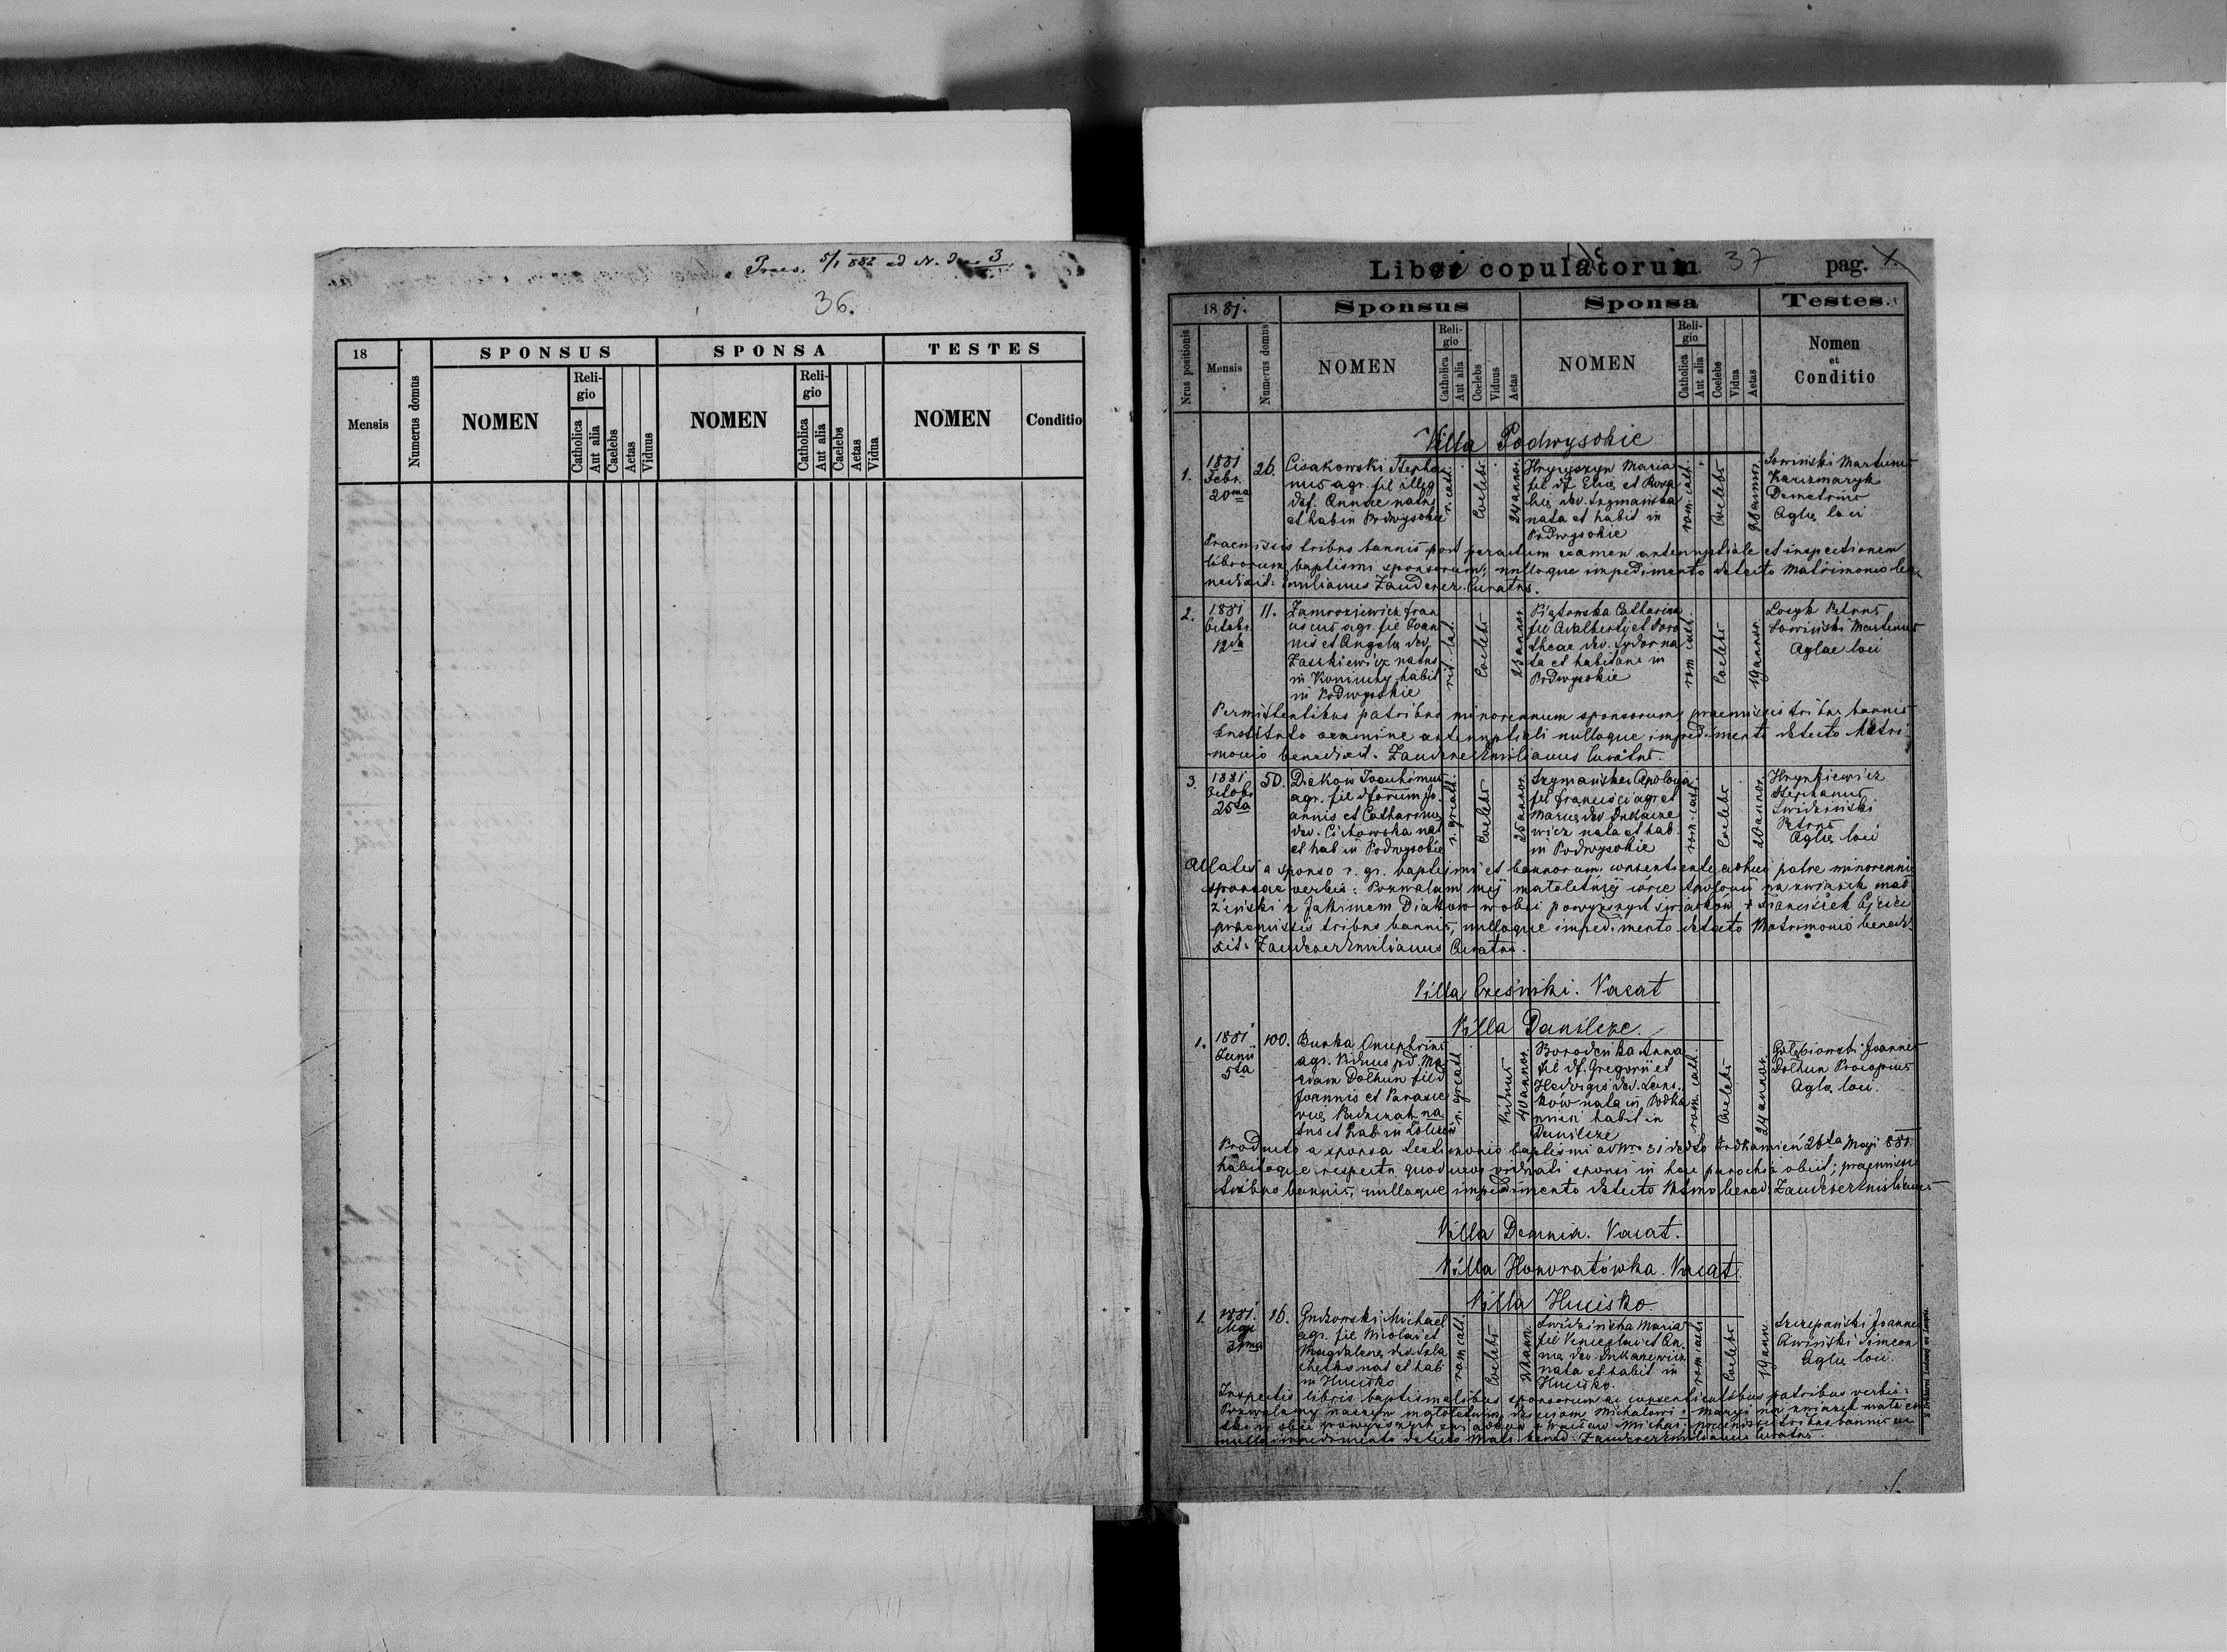 Praes. 5/1 882 ad N. 3
36.
18
SPONSUS
SPONSA
TESTES
Mensis
Numerus domus
NOMEN
Religio
Catholica
Aut alia
Caelebs
Aetas
Viduus
NOMEN
Religio
Catholica
Aut alia
Caelebs
Aetas
Vidua
NOMEN
Conditio
Liber copulatorum 37 pag.
1881.
Sponsus
Sponsa
Testes.
Nrus positionis
Mensis
Numerus domus
NOMEN
Religio
Catholica
Aut alia
Coelebs
Viduus
Aetas
NOMEN
Religio
Catholica
Aut alia
Coelebs
Vidua
Aetas
Nomen
et
Conditio
Villa Podwysokie
1.
1881
Febr.
20ma
26.
Cisakowski Stepha
nus agr. fil illeg
def. Annae natus
et hab in Podwysokie
r. cath.
Coelebs
24 annor.
Hryryszyn Maria
fil df. Eliae et Rosa
liae dev. Szymańska
nata et habit in
Podwysokie
rom. cath.
Coelebs
28 annor.
Sowiński Martinus
Karczmaryk
Demetrius
Aglae loci
Praemissis tribus bannis post peractum examen antenuptiale et inspectionem
librorum baptismi sponsorum; nulloque impedimento detecto Matrimonio be
nedixit: Emilianus Zauderer Curatus.
2.
1881
Octobr.
12da
11.
Zamroziewicz Fran
ciscus agr. fil Joan
nis et Angela dev
Zaszkiewicz natus
in Koniuchy habit
in Podwysokie
rit. lat.
Coelebs
23 annor.
Piątowska Catharina
fil Adalberti et Doro
theae dev. Sydor na
ta et habitans in
Podwysokie
rom. cath.
Coelebs
19 annor.
Łosyk Petrus
Sowiński Martinus
Aglae loci
Permittentibus patribus minorennum sponsorum, praemissis tribus bannis
Instituto examine antenuptiali nulloque impedimento detecto Matri
monio benedixit. Zauderer Emilianus Curatus.
3.
1881
Octobr
25ta
50.
Diakow Joachimus
agr. fil dforum Jo
annis et Catharinae
dev. Cichowska nat
et hab in Podwysokie
r. gr. cath.
Coelebs
25 annor.
Szymańska Apolonia
fil Francisci agr et
Mariae dev Inkaze
wicz nata et hab.
in Podwysokie
rom. cath.
Coelebs
20 annor.
Hrynkiewicz
Stephanus
Swidziński
Petrus
Aglae loci
Allatis a sponso r. gr. baptismi et bannorum consentiente patre minorennis
sponsae verbis: Pozwalam mej małoletniej córce Apolonii na związek mał
żeński z Jakimem Diakow w obec powyższych świadków + Franciszek Ojciec
praemissis tribus bannis, nulloque impedimento detecto Matrimonio benedi
xit: Zauderer Emilianus Curatus.
Villa Cześniki. Vacat
Villa Danilcze.
1.
1881
Junii
5ta
100.
Burka Onuphrius
agr. Viduus pd. Ma
riam Dolhun fil d
Joannis et Parasce
vae na
tus et hab in
r. gr. cath
Viduus
40 annor.
Borodejka Anna
fil df. Gregorii et
Hedvigis dev.
ków nata in Podka
mień habit in
Danilcze
rom. cath
Coelebs
24 annor.
Gołębiowski Joannes
Dolhun Procopius
Aglae loci.
Producto a sponsa testimonio baptismi ad Nr. 31 ddto Podkamień 26ta Maji 881.
habitoque respectu quod uxor viduati sponsi in hac parochia obiit; praemissis
tribus bannis, nulloque impedimento detecto Mtmo bened: Zauderer Emilianus
Villa Demnia. Vacat.
Villa Honoratówka. Vacat.
Villa Hucisko
1.
1881.
Maji
16.
Gutkowski Michael
agr. fil Nicolai et
Magdalena dev
nat et hab
in Hucisko
rom cath
Coelebs
Swidzińska Maria
fil Venceslai et An
na dev. Inkazewicz
nata et habit in
Hucisko.
rom cath
Coelebs
19 ann.
Szczepański Joannes
Simeon
Aglae loci.
Inspectis libris baptismalibus sponsorum ac consentientibus patribus verbis:
Pozwalamy naszym małoletnim dzieciom Michałowi i Maryi na związek małżeń
ski w obec powyższych świadków praemissis tribus bannis ac
nullo impedimento detecto Mat: bened: Zauderer Emilianus Curatus.